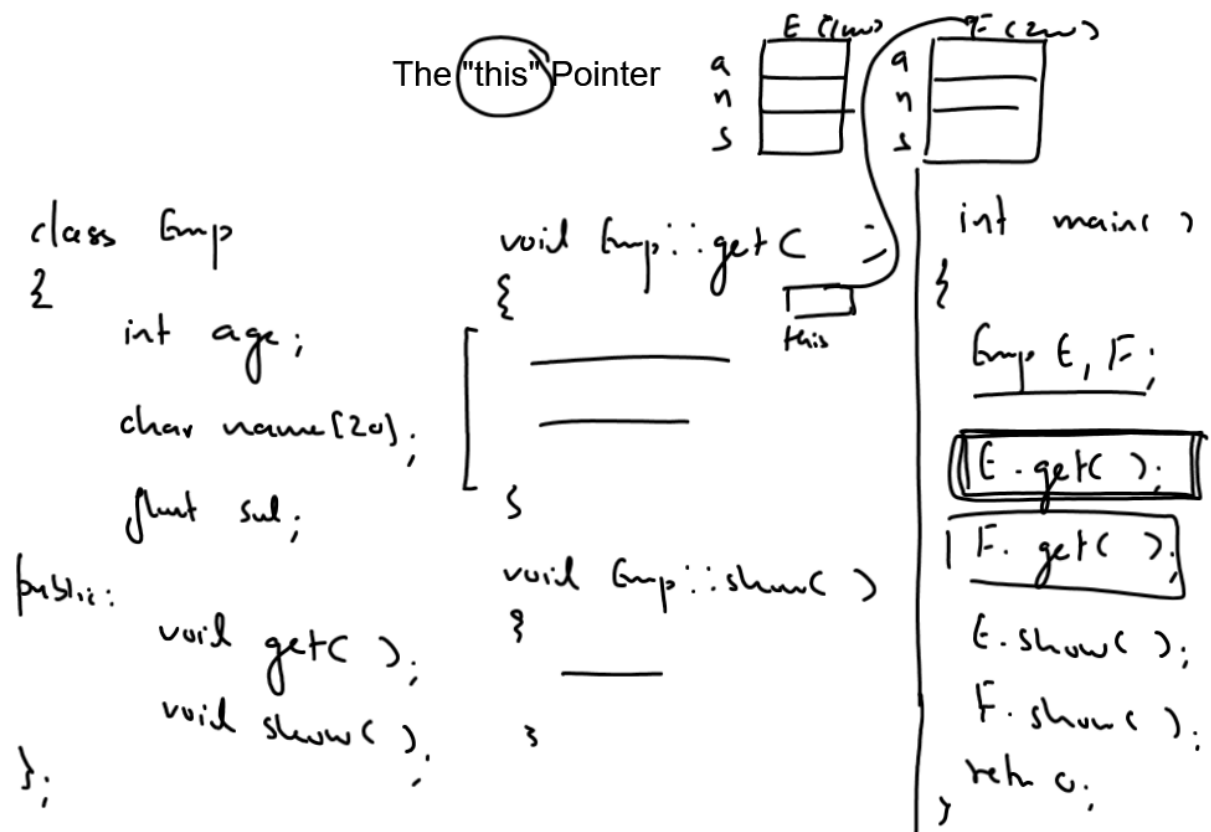 The "this" Pointer
E (1000)
a
n
s
F (2000)
a
n
s
class Emp
{
int age;
char name[20];
float sal;
public:
void get( );
void show( );
};
void Emp::get( )
{
this
}
void Emp::show( )
{
}
int main( )
{
Emp E, F;
E.get( );
F.get( );
E.show( );
F.show( );
retn 0;
}